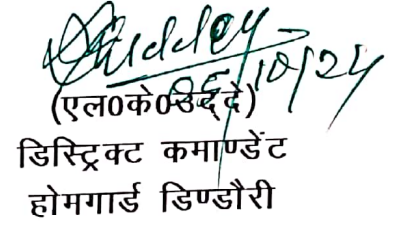 Uddey
05/10/24
(एल0के0उद्दे)
डिस्ट्रिक्ट कमाण्डेंट
होमगार्ड डिण्डौरी